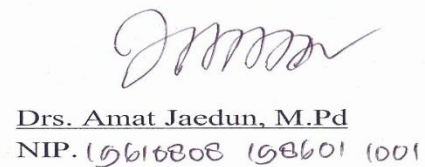 Drs. Amat Jaedun, M.Pd
NIP. 19610808 198601 1001